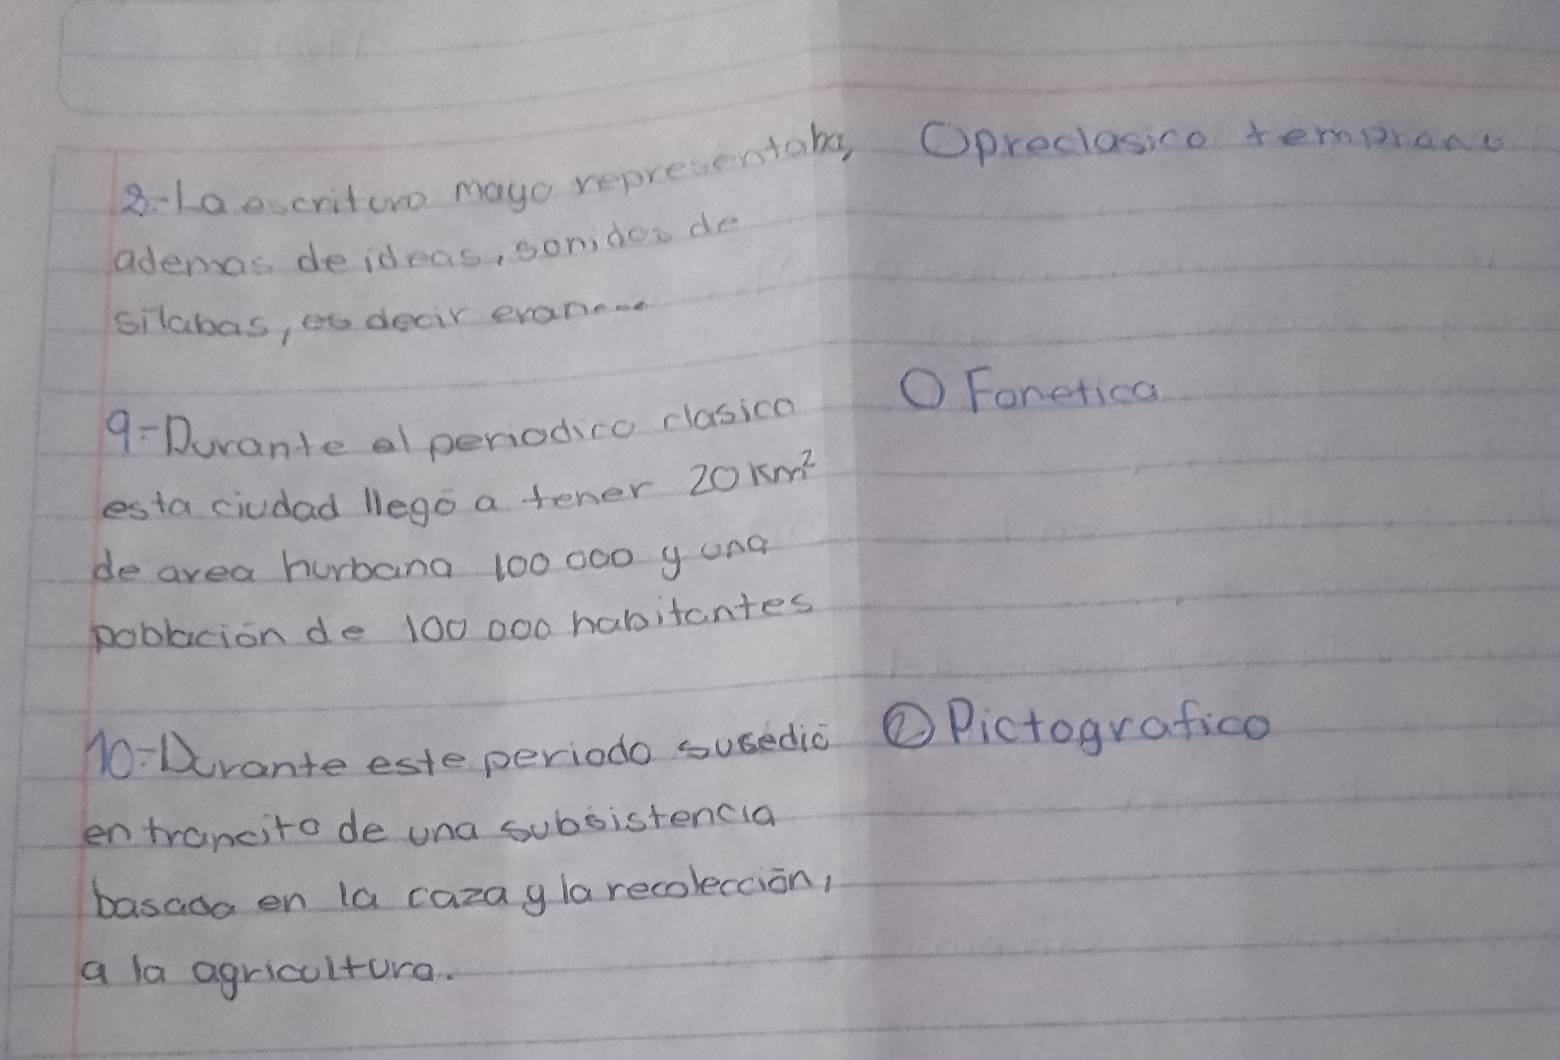 8.-La escritura maya representaba,
ademas de ideas, sonidos de
silabas, es decir eran....
O preclasico temprano
9-Durante el periodico clasico
esta ciudad llegó a tener 20 Km²
de area hurbana 100 000 y una
poblacion de 100 000 habitantes
O Fonetica
10-Durante este periodo susedió
en trancito de una subsistencia
basada en la caza y la recolección,
a la agricultura.
② Pictografico